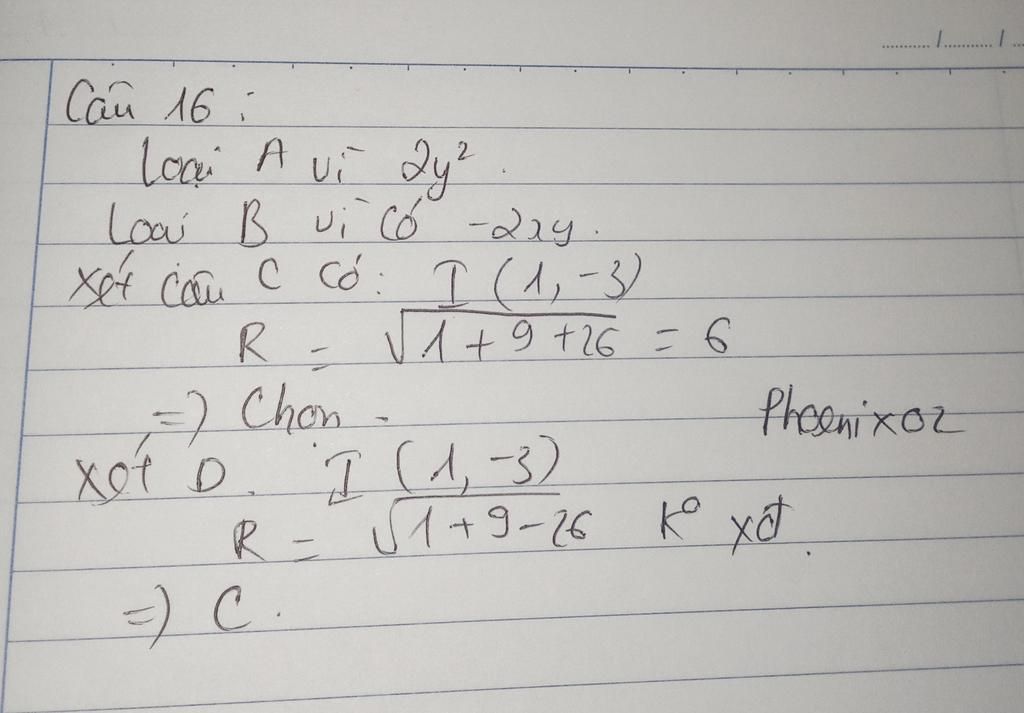 Câu 16 :
Loại A vì 2y².
Loại B vì có -2xy.
Xét câu C có: I (1, -3)
R = √1+9+26 = 6
=> Chọn.
Phoenix02
Xét D. I (1, -3)
R = √1+9-26 K° xđ.
=> C.